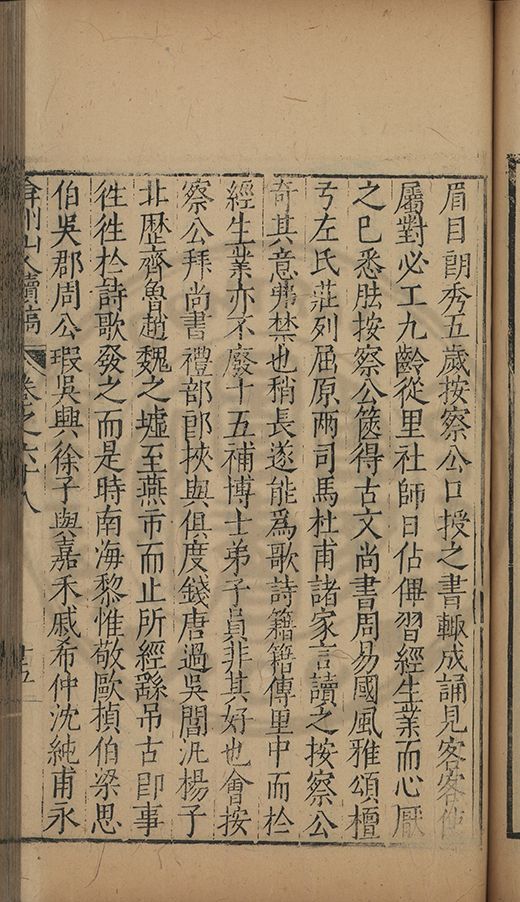 眉目朗秀五歲按察公口授之書輙成誦見客客使
屬對必工九齡從里社師日佔俾習經生業而心厭
之已悉胠按察公篋得古文尚書周易國風雅頌檀
弓左氏莊列屈原两司馬杜甫諸家言讀之按察公
奇其意弗禁也稍長遂能爲歌詩籍籍傳里中而於
經生業亦不廢十五補博士弟子員非其好也會按
察公拜尚書禮部郎挾與俱度錢唐過吳閶汎楊子
北歷齊魯趙魏之墟至燕市而止所經繇吊古卽事
徃徃於詩歌發之而是時南海黎惟敬歐楨伯梁思
伯吳郡周公瑕吳興徐子與嘉禾戚希仲沈純甫永
弇州山人續稿 卷之六十八 十五